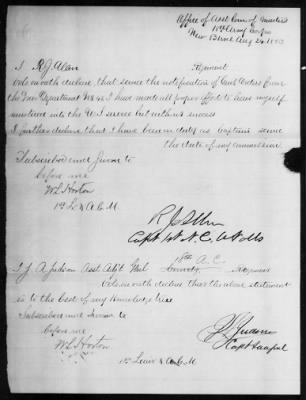 Office of Asst Com of Musters
18th Army Corps
New Berne Aug 24 1863
I R J Allen
do on oath declare, that since the notification of
the War Department I have made all proper effort to have myself
mustered into the U S service but without success
I further declare that I have been on duty as Captain since
the date of my commission
Subscribed and sworn to
before me
W L Horton
1st Lt & A.C.M.
R J Allen
Capt 1st N.C. Vols
I J A Judson Asst Adjt Genl 18th A.C.
do on oath declare that the above statement
is to the best of my knowledge true
Subscribed and sworn to
before me
W L Horton
1st Lieut & A C M
Judson
Capt